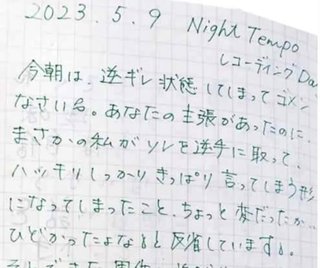 2023.5.9 Night Tempo
レコーディングDa
今朝は、逆ギレ状態してしまってゴメン
なさい🙇。あなたの主張があったのに、
まさかの私がソレを逆手に取って、
ハッキリしっかりきっぱり言ってしまう形
になってしまったこと、ちょっと変だったか…
ひどかったよなぁと反省しています。